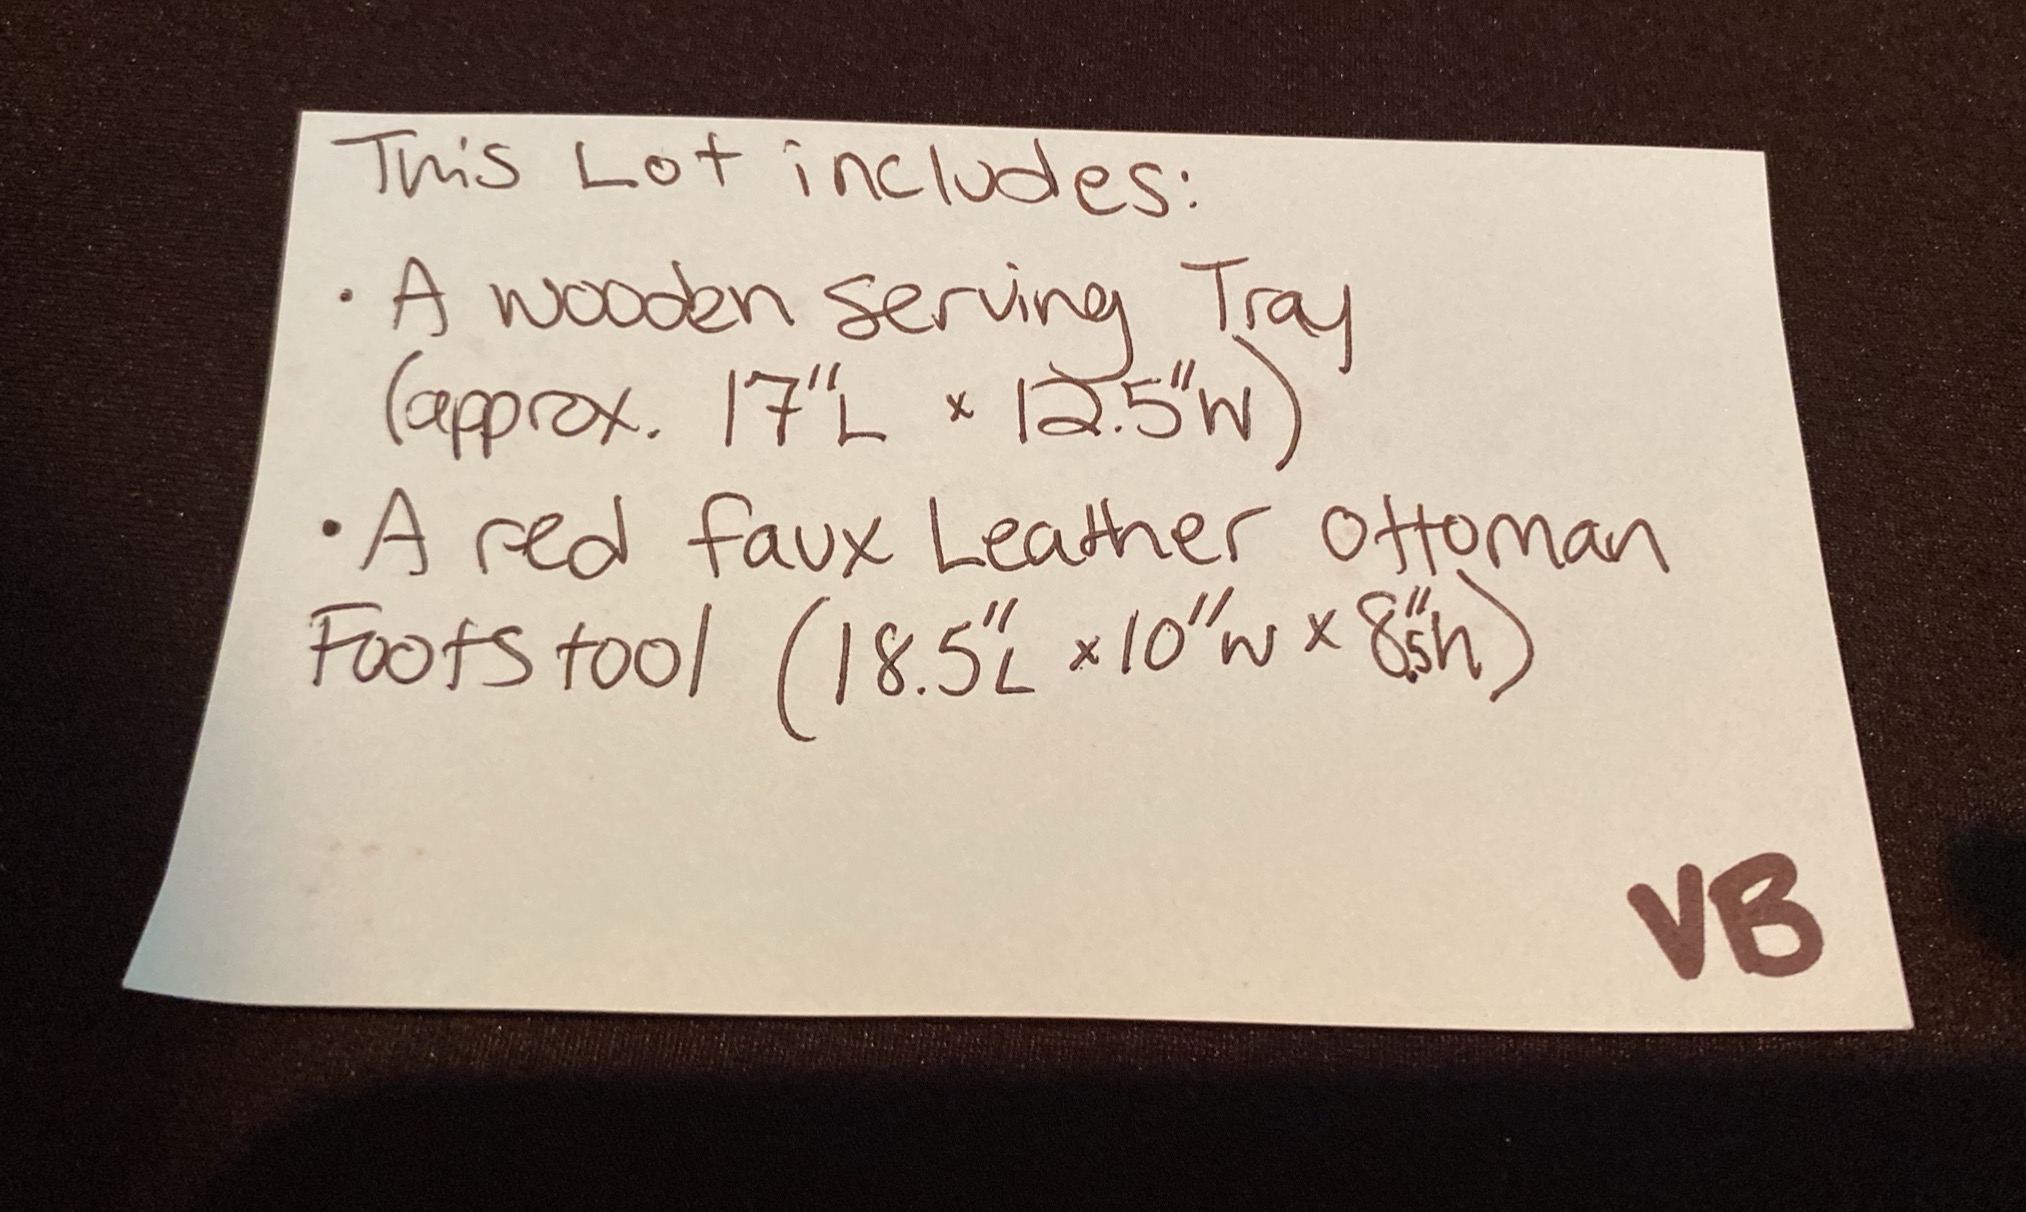 This Lot includes:
· A wooden serving Tray
(approx. 17"L x 12.5"W)
· A red faux Leather Ottoman
Footstool (18.5"L x 10"W x 8.5"h)
VB